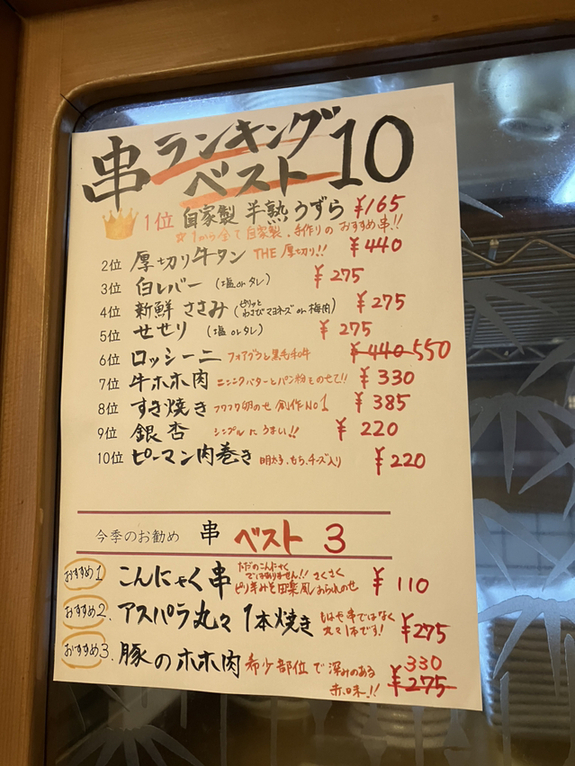 串ランキング
ベスト10
1位 自家製 半熟 うずら ¥165
☆1から全て自家製、手作りのおすすめ串!!
2位 厚切り牛タン THE 厚切り!! ¥440
3位 白レバー (塩orタレ) ¥275
4位 新鮮 ささみ (ピリッとわさびマヨネーズ or 梅肉) ¥275
5位 せせり (塩orタレ) ¥275
6位 ロッシーニ フォアグラと黒毛和牛 ¥440 550
7位 牛ホホ肉 ニンニクバターとパン粉ものせて!! ¥330
8位 すき焼き フワフワ卵のせ 創作No1 ¥385
9位 銀杏 シンプルにうまい!! ¥220
10位 ピーマン肉巻き 明太子、もち、チーズ入り ¥220
今季のお勧め 串 ベスト 3
おすすめ1 こんにゃく串 ただのこんにゃくではありません!! さくさくピリ辛みそ田楽風おられのせ ¥110
おすすめ2. アスパラ丸々1本焼き もはや串ではなく丸々1本です! ¥275
おすすめ3. 豚のホホ肉 希少部位で深みのある赤味!! ¥275 330